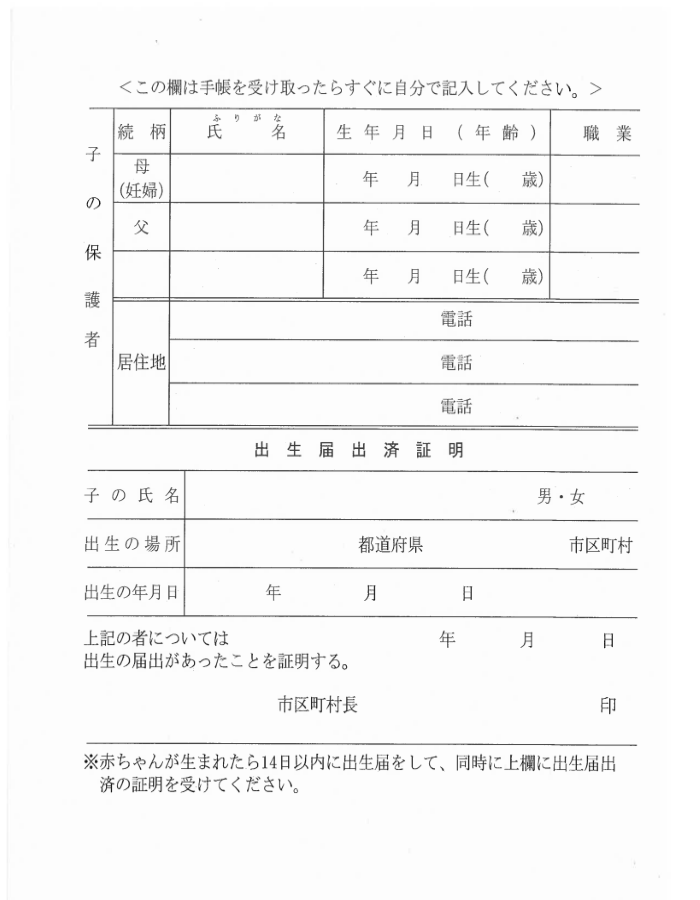 ＜この欄は手帳を受け取ったらすぐに自分で記入してください。＞
子の保護者
続柄 氏名 生年月日（年齢） 職業
ふりがな
母
(妊婦)
年 月 日生( 歳)
父 年 月 日生( 歳)
年 月 日生( 歳)
居住地
電話
電話
電話
出生届出済証明
子の氏名 男・女
出生の場所 都道府県 市区町村
出生の年月日 年 月 日
上記の者については 年 月 日
出生の届出があったことを証明する。
市区町村長 印
※赤ちゃんが生まれたら14日以内に出生届をして、同時に上欄に出生届出
済の証明を受けてください。